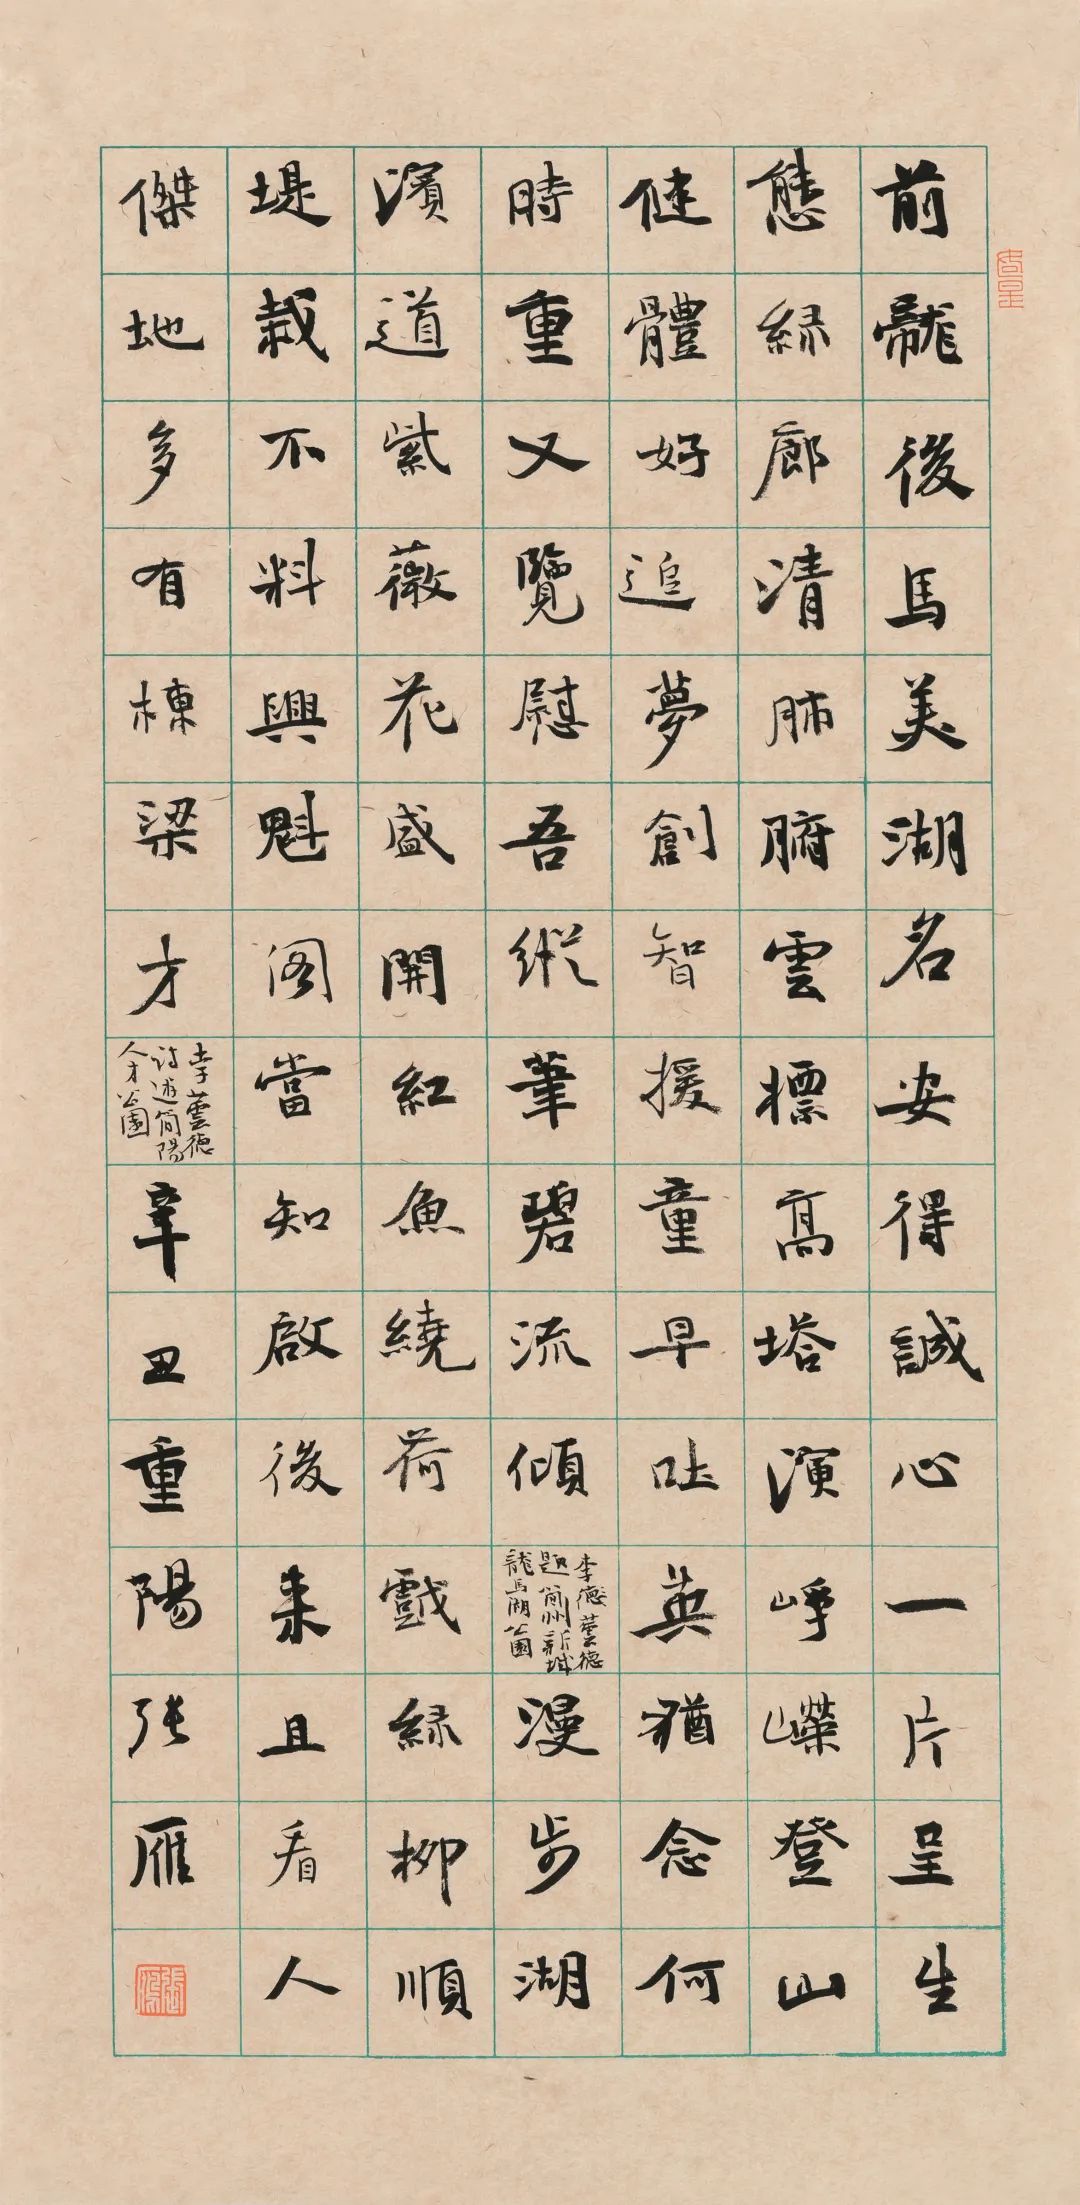 前龍後馬美湖名安得誠心一片呈生
態綠廊清肺腑雲標高塔演崢嶸登山
健體好追夢創智援童早吐英猶念何
時重又覽慰吾縱筆碧流傾
李德蕓德
題簡州新城
龍馬湖公園
漫步湖
濱道紫薇花盛開紅魚繞荷戲綠柳順
堤栽不料興魁阁當知啟後来且看人
傑地多有棟梁才
李蕓德
詩遊簡陽
人才公園
辛丑重陽张雁
張雁